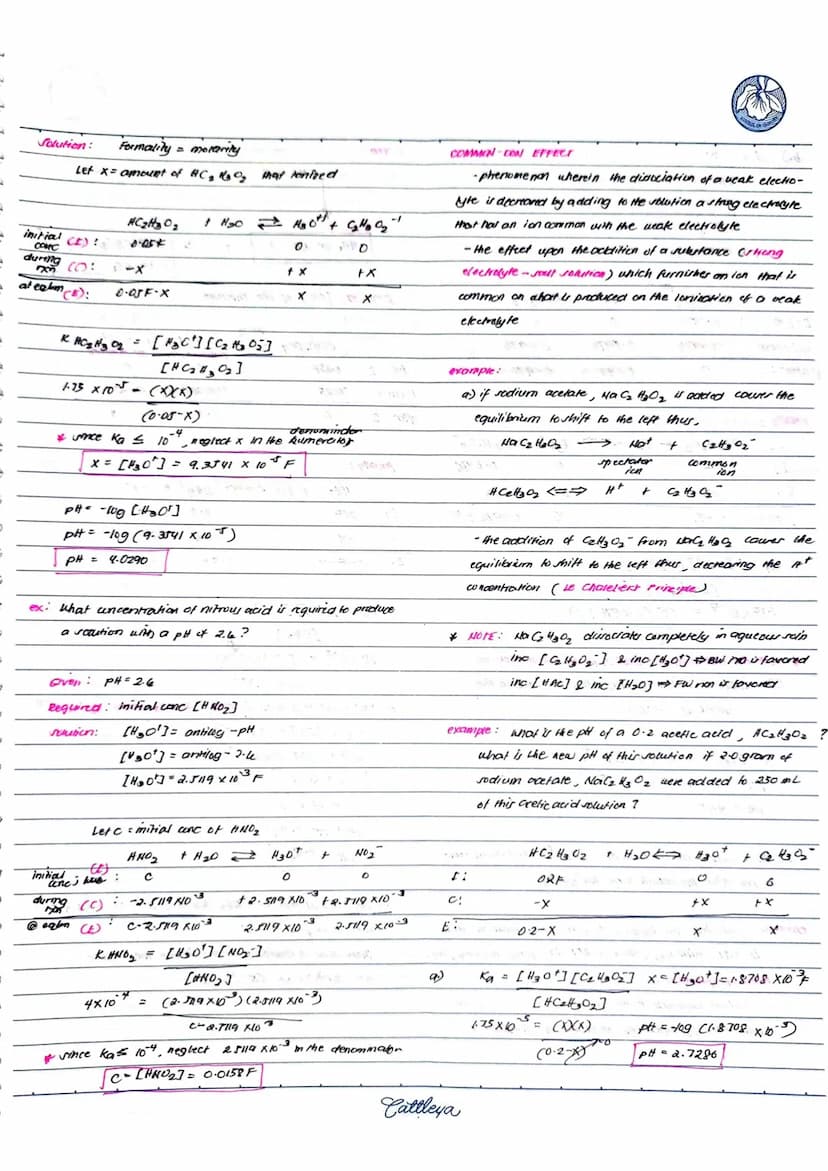 Solution: Formality = molarity
Let x = amount of HC2H3O2 that ionized
HC2H3O2 + H2O ⇌ H3O+1 + C2H3O2-1
initial conc (I): 0.05F 0 0
during rxn (C): -x +x +x
at eqbm (E): 0.05F-x x x
K HC2H3O2 = [H3O+][C2H3O2-]
[HC2H3O2]
1.75 x 10-5 = (x)(x)
(0.05-x)
denominator
* since Ka ≤ 10-4, neglect x in the numerator
x = [H3O+] = 9.3541 x 10-5 F
pH = -log [H3O+]
pH = -log (9.3541 x 10-5)
pH = 4.0290
ex: What concentration of nitrous acid is required to produce
a solution with a pH of 2.6?
Given: pH = 2.6
Required: initial conc [HNO2]
solution: [H3O+] = antilog -pH
[H3O+] = antilog -2.6
[H3O+] = 2.5119 x 10-3 F
Let c = initial conc of HNO2
HNO2 + H2O ⇌ H3O+ + NO2-
initial conc (I): C 0 0
during rxn (C): -2.5119 x10-3 +2.5119 x10-3 +2.5119 x10-3
@ eqbm (E): C-2.5119 x10-3 2.5119 x10-3 2.5119 x10-3
K HNO2 = [H3O+][NO2-]
[HNO2]
4x10-4 = (2.5119 x10-3)(2.5119 x10-3)
C-2.5119 x10-3
* since Ka ≤ 10-4, neglect 2.5119 x10-3 in the denominator
C = [HNO2] = 0.0158F
COMMON-ION EFFECT
- phenomenon wherein the dissociation of a weak electro-
lyte is decreased by adding to the solution a strong electrolyte
that has an ion common with the weak electrolyte
- the effect upon the addition of a substance (strong
electrolyte - salt solution) which furnishes an ion that is
common on what is produced on the ionization of a weak
electrolyte
example:
a) if sodium acetate, NaC2H3O2 is added causes the
equilibrium to shift to the left thus,
NaC2H3O2 ⟶ Na+ + C2H3O2-
spectator ion common ion
HC2H3O2 <=> H+ + C2H3O2-
- the addition of C2H3O2- from NaC2H3O2 causes the
equilibrium to shift to the left thus, decreasing the H+
concentration (Le Chatelier's Principle)
* NOTE: NaC2H3O2 dissociates completely in aqueous soln
inc [C2H3O2-] & inc [H3O+] ⇒ BW rxn is favored
inc [HAc] & inc [H2O] ⇒ FW rxn is favored
example: What is the pH of a 0.2 acetic acid, HC2H3O2?
what is the new pH of this solution if 2.0 gram of
sodium acetate, NaC2H3O2 were added to 250 mL
of this acetic acid solution?
HC2H3O2 + H2O <=> H3O+ + C2H3O2-
I: 0.2F 0 0
C: -x +x +x
E: 0.2-x x x
a) Ka = [H3O+][C2H3O2-] x = [H3O+] = 1.8708 x10-3 F
[HC2H3O2]
1.75x10-5 = (x)(x) pH = -log (1.8708 x10-3)
(0.2-x)→0 pH = 2.7286
Cattleya